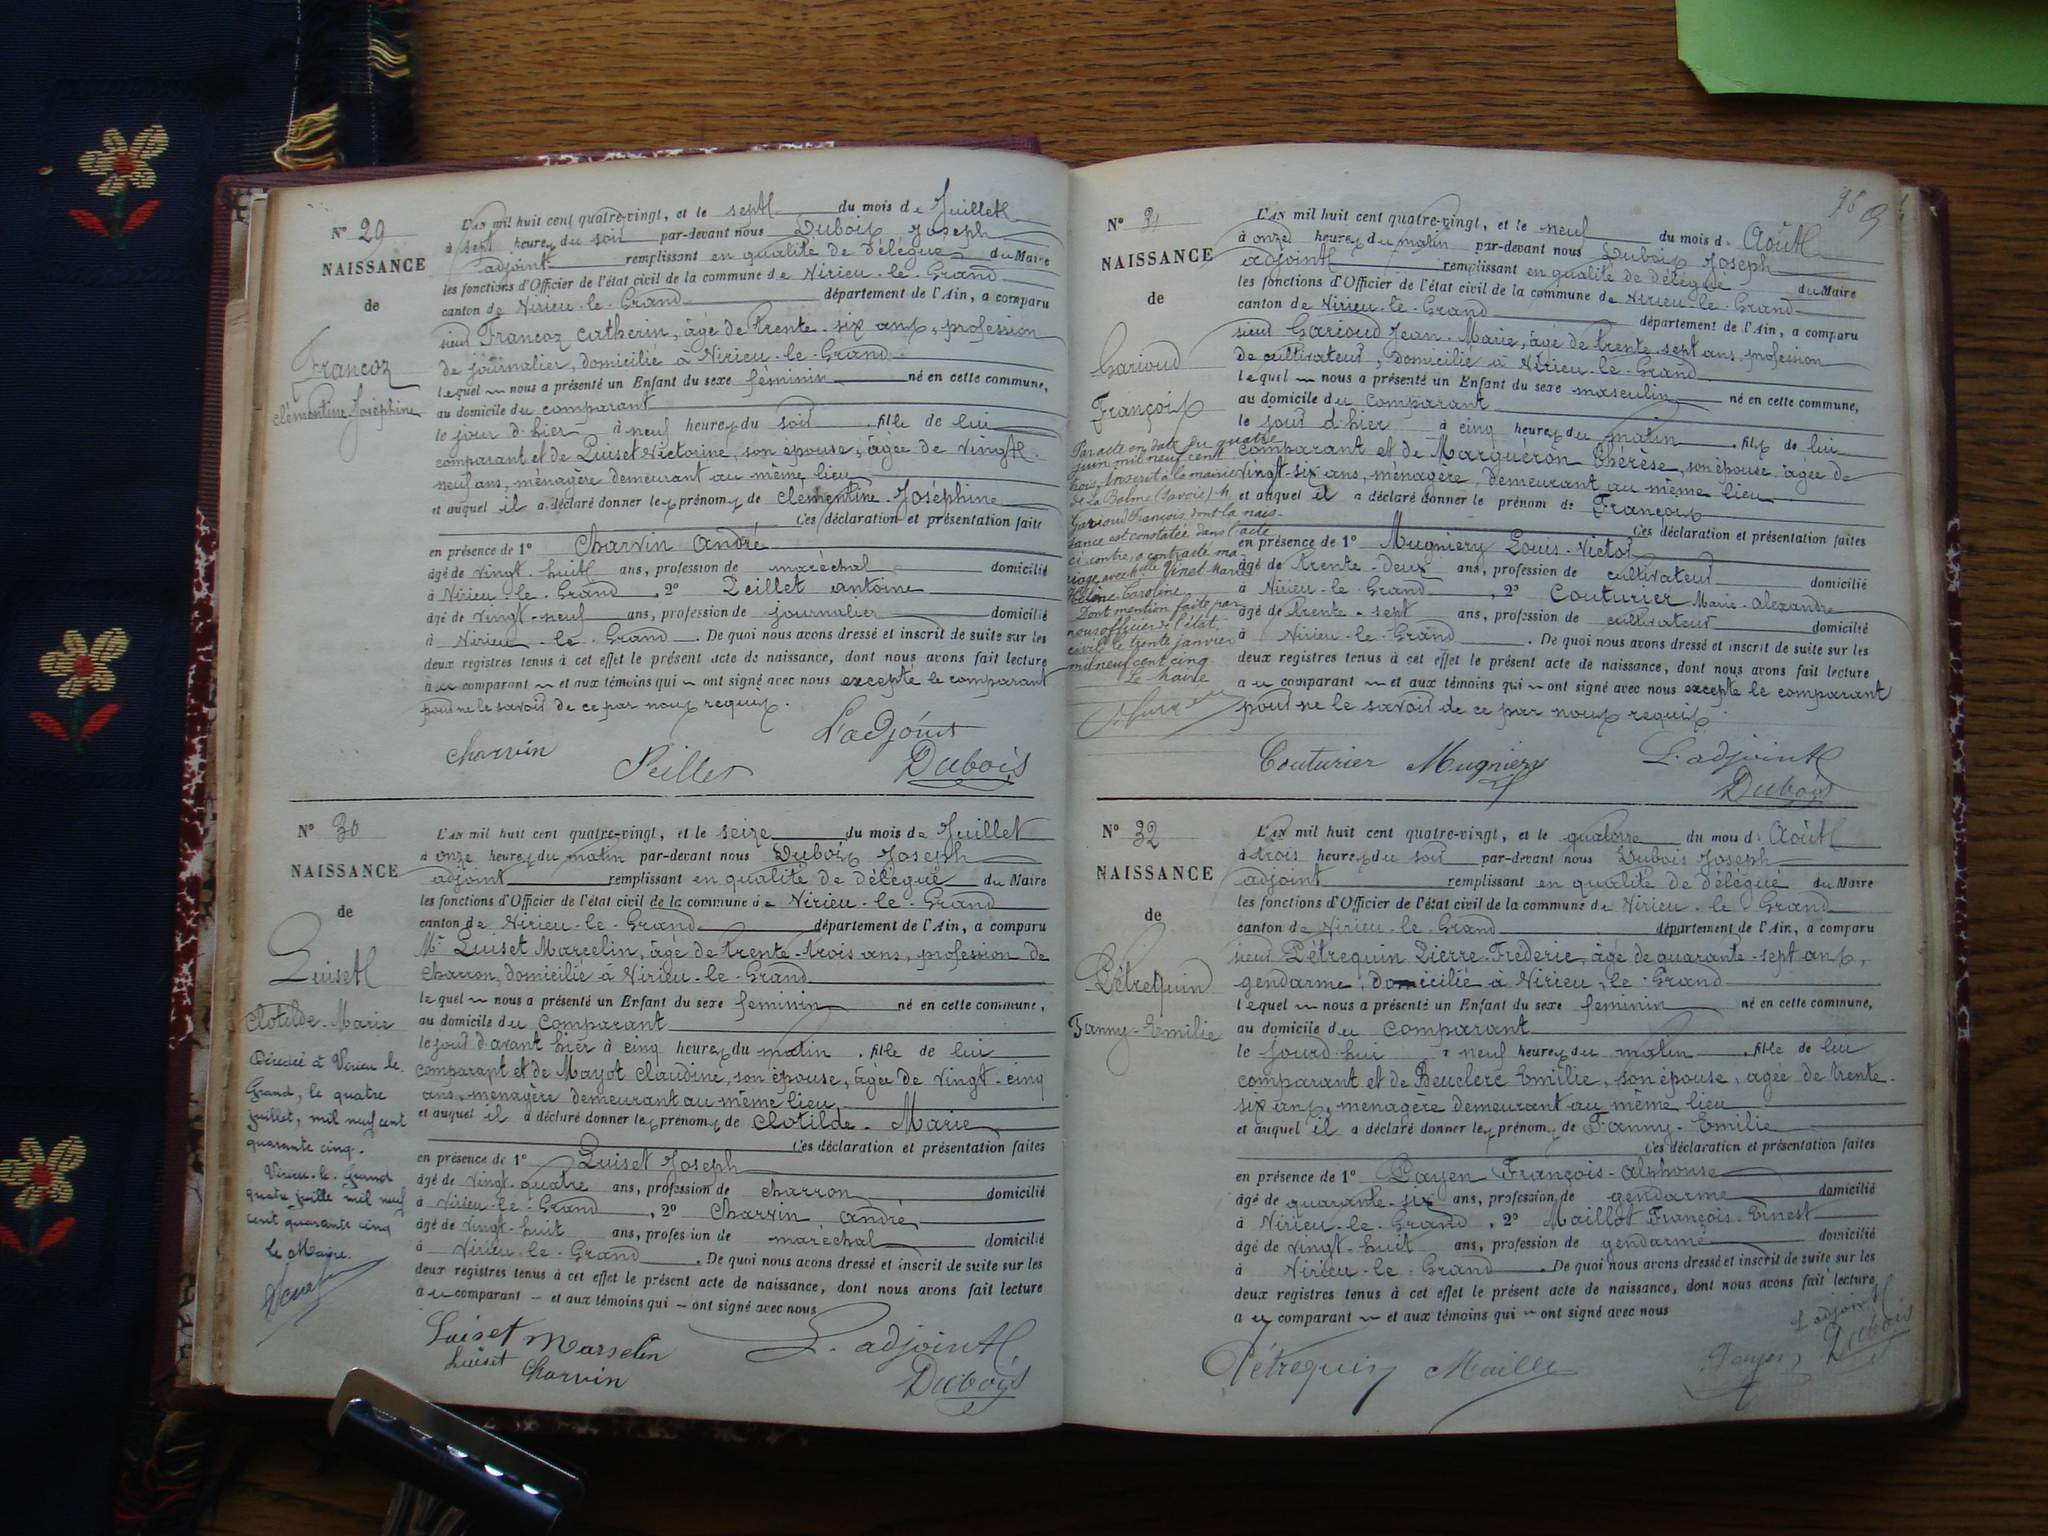 N° 29
NAISSANCE
de
Francoz
Clémentine Joséphine
L'AN mil huit cent quatre-vingt, et le sept du mois de Juillet
à sept heures du soir par-devant nous Dubois Joseph
adjoint remplissant en qualité de délégué du Maire
les fonctions d'Officier de l'état civil de la commune de Virieu-le-Grand
canton de Virieu-le-Grand département de l'Ain, a comparu
sieur Francoz Catherin, âgé de trente-six ans, profession
de journalier, domicilié à Virieu-le-Grand
lequel nous a présenté un Enfant du sexe féminin né en cette commune,
au domicile du comparant
le jour d'hier à neuf heures du soir, fille de lui
comparant et de Luiset Victorine, son épouse, âgée de vingt-
neuf ans, ménagère demeurant au même lieu
et auquel il a déclaré donner les prénoms de Clémentine-Joséphine
Ces déclaration et présentation faites
en présence de 1° Charvin André
âgé de vingt-huit ans, profession de maréchal domicilié
à Virieu-le-Grand, 2° Peillet antoine
âgé de vingt-neuf ans, profession de journalier domicilié
à Virieu-le-Grand. De quoi nous avons dressé et inscrit de suite sur les
deux registres tenus à cet effet le présent acte de naissance, dont nous avons fait lecture
au comparant et aux témoins qui ont signé avec nous excepté le comparant
pour ne le savoir de ce par nous requis.
Charvin Peillet L'adjoint
Dubois
N° 30
NAISSANCE
de
Luiset
Clotilde-Marie
Décédée à Virieu le
Grand, le quatre
juillet, mil neuf cent
quarante cinq.
Virieu-le-Grand
quatre juillet mil neuf
cent quarante cinq
Le Maire.
L'AN mil huit cent quatre-vingt, et le seize du mois de Juillet
à onze heures du matin par-devant nous Dubois Joseph
adjoint remplissant en qualité de délégué du Maire
les fonctions d'Officier de l'état civil de la commune de Virieu-le-Grand
canton de Virieu-le-Grand département de l'Ain, a comparu
Mr Luiset Marcelin, âgé de trente-trois ans, profession de
charron, domicilié à Virieu-le-Grand
lequel nous a présenté un Enfant du sexe feminin né en cette commune,
au domicile du comparant
le jour d'avant hier à cinq heures du matin, fille de lui
comparant et de Mayot Claudine, son épouse, âgée de vingt-cinq
ans, menagère demeurant au même lieu
et auquel il a déclaré donner les prénoms de Clotilde-Marie
Ces déclaration et présentation faites
en présence de 1° Luiset Joseph
âgé de vingt-quatre ans, profession de charron domicilié
à Virieu-le-Grand, 2° Charvin André
âgé de vingt-huit ans, profession de maréchal domicilié
à Virieu-le-Grand. De quoi nous avons dressé et inscrit de suite sur les
deux registres tenus à cet effet le présent acte de naissance, dont nous avons fait lecture
au comparant et aux témoins qui ont signé avec nous
Luiset Marselin L'adjoint
Luiset Charvin Dubois
N° 31
NAISSANCE
de
Garioud
François
Par acte en date du quatre
juin mil neuf cent
trois, inscrit à la mairie
de La Balme (Savoie)
Garioud François, dont la nais-
sance est constatée dans l'acte
ci-contre, a contracté ma-
riage avec Melle Vinet Marie
Hélène-Caroline.
Dont mention faite par
nous officier de l'état
civil le trente janvier
mil neuf cent cinq
Le Maire
L'AN mil huit cent quatre-vingt, et le neuf du mois d'Août
à onze heures du matin par-devant nous Dubois Joseph
adjoint remplissant en qualité de délégué du Maire
les fonctions d'Officier de l'état civil de la commune de Virieu-le-Grand
canton de Virieu-le-Grand département de l'Ain, a comparu
sieur Garioud Jean-Marie, âgé de trente-sept ans, profession
de cultivateur, domicilié à Virieu-le-Grand
lequel nous a présenté un Enfant du sexe masculin né en cette commune,
au domicile du comparant
le jour d'hier à cinq heures du matin, fils de lui
comparant et de Marguéron Thérèse, son épouse âgée de
vingt-six ans, ménagère, demeurant au même lieu
et auquel il a déclaré donner le prénom de François
Ces déclaration et présentation faites
en présence de 1° Mugniery Louis-Victor
âgé de trente-deux ans, profession de cultivateur domicilié
à Virieu-le-Grand, 2° Couturier Marie-Alexandre
âgé de trente-sept ans, profession de cultivateur domicilié
à Virieu-le-Grand. De quoi nous avons dressé et inscrit de suite sur les
deux registres tenus à cet effet le présent acte de naissance, dont nous avons fait lecture
au comparant et aux témoins qui ont signé avec nous excepté le comparant
pour ne le savoir de ce par nous requis
Couturier Mugniery L'adjoint
Dubois
N° 32
NAISSANCE
de
Pétrequin
Fanny-Emilie
L'AN mil huit cent quatre-vingt, et le quatorze du mois d'Août
à trois heures du soir par-devant nous Dubois Joseph
adjoint remplissant en qualité de délégué du Maire
les fonctions d'Officier de l'état civil de la commune de Virieu-le-Grand
canton de Virieu-le-Grand département de l'Ain, a comparu
sieur Pétrequin Pierre-Fréderic, âgé de quarante-sept ans,
gendarme, domicilié à Virieu-le-Grand
lequel nous a présenté un Enfant du sexe feminin né en cette commune,
au domicile du comparant
le jourd'hui à neuf heures du matin, fille de lui
comparant et de Beucleré Emilie, son épouse, agée de trente-
six ans, menagère demeurant au même lieu
et auquel il a déclaré donner les prénoms de Fanny-Emilie
Ces déclaration et présentation faites
en présence de 1° Payen François-Alphonse
âgé de quarante-six ans, profession de gendarme domicilié
à Virieu-le-Grand, 2° Maillot François-Ernest
âgé de vingt-huit ans, profession de gendarme domicilié
à Virieu-le-Grand. De quoi nous avons dressé et inscrit de suite sur les
deux registres tenus à cet effet le présent acte de naissance, dont nous avons fait lecture
au comparant et aux témoins qui ont signé avec nous
L'adjoint
Pétrequin Maillot Payen Dubois